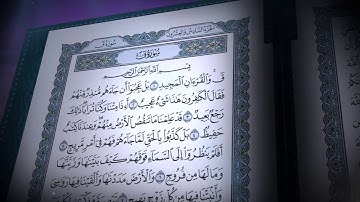 الجزء السادس والعشرون
سورة ق
سُورَةُ قٓ
بِسْمِ ٱللَّهِ ٱلرَّحْمَٰنِ ٱلرَّحِيمِ
قٓ ۚ وَٱلْقُرْءَانِ ٱلْمَجِيدِ ١ بَلْ عَجِبُوٓا۟ أَن جَآءَهُم مُّنذِرٌ مِّنْهُمْ
فَقَالَ ٱلْكَٰفِرُونَ هَٰذَا شَىْءٌ عَجِيبٌ ٢ أَءِذَا مِتْنَا وَكُنَّا تُرَابًا ۖ ذَٰلِكَ
رَجْعٌۢ بَعِيدٌ ٣ قَدْ عَلِمْنَا مَا تَنقُصُ ٱلْأَرْضُ مِنْهُمْ ۖ وَعِندَنَا كِتَٰبٌ
حَفِيظٌۢ ٤ بَلْ كَذَّبُوا۟ بِٱلْحَقِّ لَمَّا جَآءَهُمْ فَهُمْ فِىٓ أَمْرٍ مَّرِيجٍ ٥
أَفَلَمْ يَنظُرُوٓا۟ إِلَى ٱلسَّمَآءِ فَوْقَهُمْ كَيْفَ بَنَيْنَٰهَا وَزَيَّنَّٰهَا
وَمَا لَهَا مِن فُرُوجٍ ٦ وَٱلْأَرْضَ مَدَدْنَٰهَا وَأَلْقَيْنَا فِيهَا رَوَٰسِىَ
وَأَنۢبَتْنَا فِيهَا مِن كُلِّ زَوْجٍۭ بَهِيجٍ